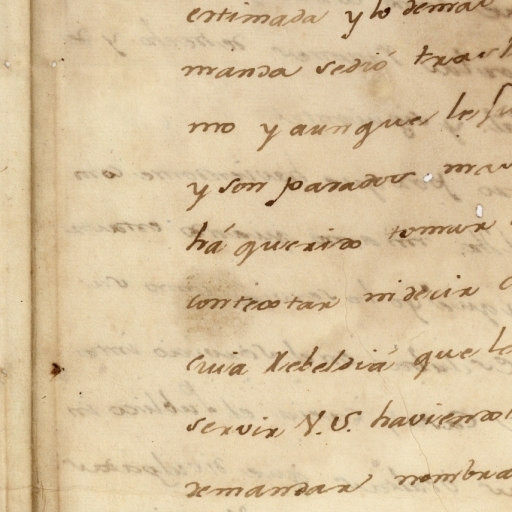 estimada y lo demas
manda se dió tras
mo y aunque le fu
y son pasados mas
há querido tomar
contestar ni decir
cuia Rebeldiá que le
servir V.S. haviendo
demandar nombra